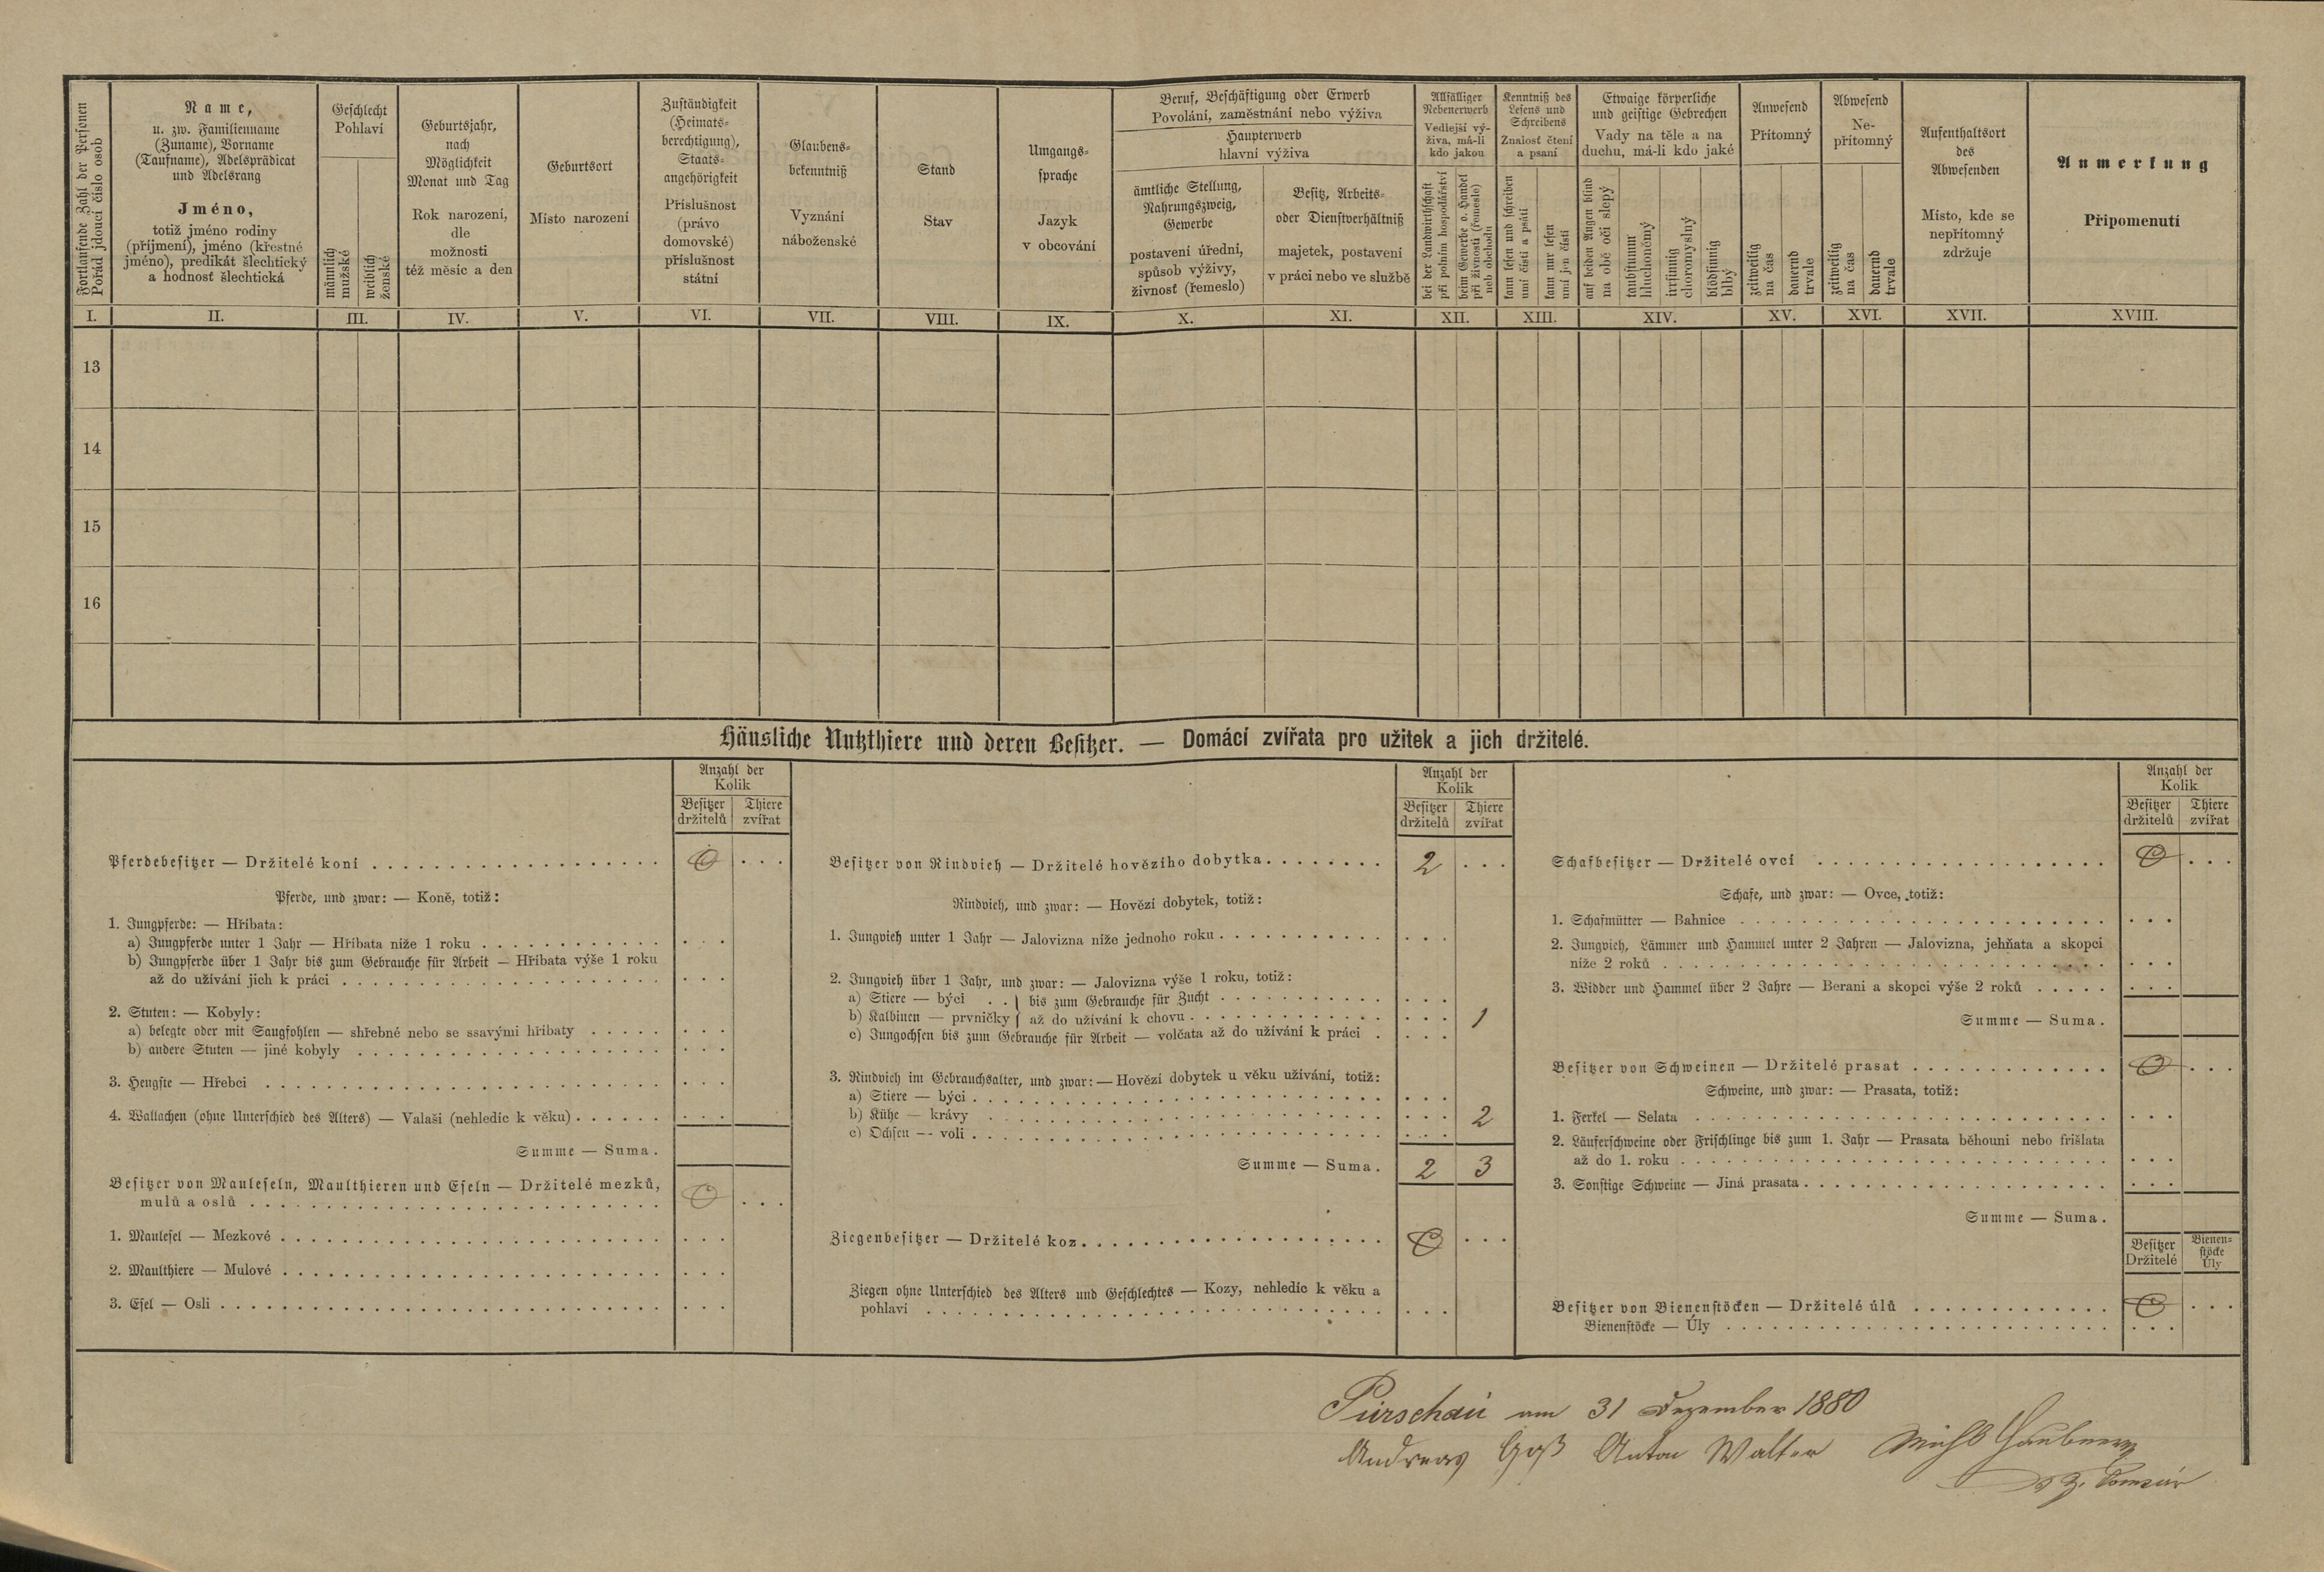 Fortlaufende Zahl der Personen
Pořád jdoucí číslo osob
Name,
u. zw. Familienname
(Zuname), Vorname
(Taufname), Adelsprädicat
und Adelsrang
Jméno,
totiž jméno rodiny
(příjmení), jméno (křestné
jméno), predikát šlechtický
a hodnosť šlechtická
Geschlecht
Pohlaví
männlich
mužské
weiblich
ženské
Geburtsjahr,
nach
Möglichkeit
Monat und Tag
Rok narození,
dle
možnosti
též měsíc a den
Geburtsort
Místo narození
Zuständigkeit
(Heimats-
berechtigung),
Staats-
angehörigkeit
Příslušnost
(právo
domovské)
příslušnost
státní
Glaubens-
bekenntniß
Vyznání
náboženské
Stand
Stav
Umgangs-
sprache
Jazyk
v obcování
Beruf, Beschäftigung oder Erwerb
Povolání, zaměstnání nebo výživa
Haupterwerb
hlavní výživa
ämtliche Stellung,
Nahrungszweig,
Gewerbe
postavení úřední,
spůsob výživy,
živnosť (řemeslo)
Besitz, Arbeits-
oder Dienstverhältniß
majetek, postavení
v práci nebo ve službě
Allfälliger
Nebenerwerb
Vedlejší vý-
živa, má-li
kdo jakou
bei der Landwirthschaft
při polním hospodářství
beim Gewerbe o. Handel
při živnosti (řemesle)
neb obchodu
Kenntniß des
Lesens und
Schreibens
Znalosť čtení
a psaní
kann lesen und schreiben
umí čísti a psáti
kann nur lesen
umí jen čísti
Etwaige körperliche
und geistige Gebrechen
Vady na těle a na
duchu, má-li kdo jaké
auf beiden Augen blind
na obě oči slepý
taubstumm
hluchoněmý
irrsinnig
choromyslný
blödsinnig
blbý
Anwesend
Přítomný
zeitweilig
na čas
dauernd
trvale
Abwesend
Ne-
přítomný
zeitweilig
na čas
dauernd
trvale
Aufenthaltsort
des
Abwesenden
Místo, kde se
nepřítomný
zdržuje
Anmerkung
Připomenutí
I. II. III. IV. V. VI. VII. VIII. IX. X. XI. XII. XIII. XIV. XV. XVI. XVII. XVIII.
13
14
15
16
Häusliche Nutzthiere und deren Besitzer. — Domácí zvířata pro užitek a jich držitelé.
Anzahl der
Kolik
Besitzer Thiere
držitelů zvířat
Pferdebesitzer — Držitelé koní . . . 0 . . .
Pferde, und zwar: — Koně, totiž:
1. Jungpferde: — Hříbata:
a) Jungpferde unter 1 Jahr — Hříbata níže 1 roku . . .
b) Jungpferde über 1 Jahr bis zum Gebrauche für Arbeit — Hříbata výše 1 roku
až do užívání jich k práci . . .
2. Stuten: — Kobyly:
a) belegte oder mit Saugfohlen — shřebné nebo se ssavými hříbaty . . .
b) andere Stuten — jiné kobyly . . .
3. Hengste — Hřebci . . .
4. Wallachen (ohne Unterschied des Alters) — Valaši (nehledíc k věku) . . .
Summe — Suma.
Besitzer von Mauleseln, Maulthieren und Eseln — Držitelé mezků,
mulů a oslů . . . 0 . . .
1. Maulesel — Mezkové . . .
2. Maulthiere — Mulové . . .
3. Esel — Osli . . .
Anzahl der
Kolik
Besitzer Thiere
držitelů zvířat
Besitzer von Rindvieh — Držitelé hovězího dobytka . . . 2 . . .
Rindvieh, und zwar: — Hovězí dobytek, totiž:
1. Jungvieh unter 1 Jahr — Jalovizna níže jednoho roku . . .
2. Jungvieh über 1 Jahr, und zwar: — Jalovizna výše 1 roku, totiž:
a) Stiere — býci . . } bis zum Gebrauche für Zucht . . .
b) Kalbinen — prvničky } až do užívání k chovu . . . 1
c) Jungochsen bis zum Gebrauche für Arbeit — volčata až do užívání k práci . . .
3. Rindvieh im Gebrauchsalter, und zwar: — Hovězí dobytek u věku užívání, totiž:
a) Stiere — býci . . .
b) Kühe — krávy . . . 2
c) Ochsen — voli . . .
Summe — Suma. 2 3
Ziegenbesitzer — Držitelé koz . . . 0 . . .
Ziegen ohne Unterschied des Alters und Geschlechtes — Kozy, nehledíc k věku a
pohlaví . . .
Anzahl der
Kolik
Besitzer Thiere
držitelů zvířat
Schafbesitzer — Držitelé ovcí . . . 0 . . .
Schafe, und zwar: — Ovce, totiž:
1. Schafmütter — Bahnice . . .
2. Jungvieh, Lämmer und Hammel unter 2 Jahren — Jalovizna, jehňata a skopci
níže 2 roků . . .
3. Widder und Hammel über 2 Jahre — Berani a skopci výše 2 roků . . .
Summe — Suma.
Besitzer von Schweinen — Držitelé prasat . . . 0 . . .
Schweine, und zwar: — Prasata, totiž:
1. Ferkel — Selata . . .
2. Läuferschweine oder Frischlinge bis zum 1. Jahr — Prasata běhouni nebo frišlata
až do 1. roku . . .
3. Sonstige Schweine — Jiná prasata . . .
Summe — Suma.
Besitzer Bienen-
stöcke
Držitelé Úly
Besitzer von Bienenstöcken — Držitelé úlů . . . 0 . . .
Bienenstöcke — Úly . . .
Pürschau am 31 Dezember 1880
Andreas Anton Walter